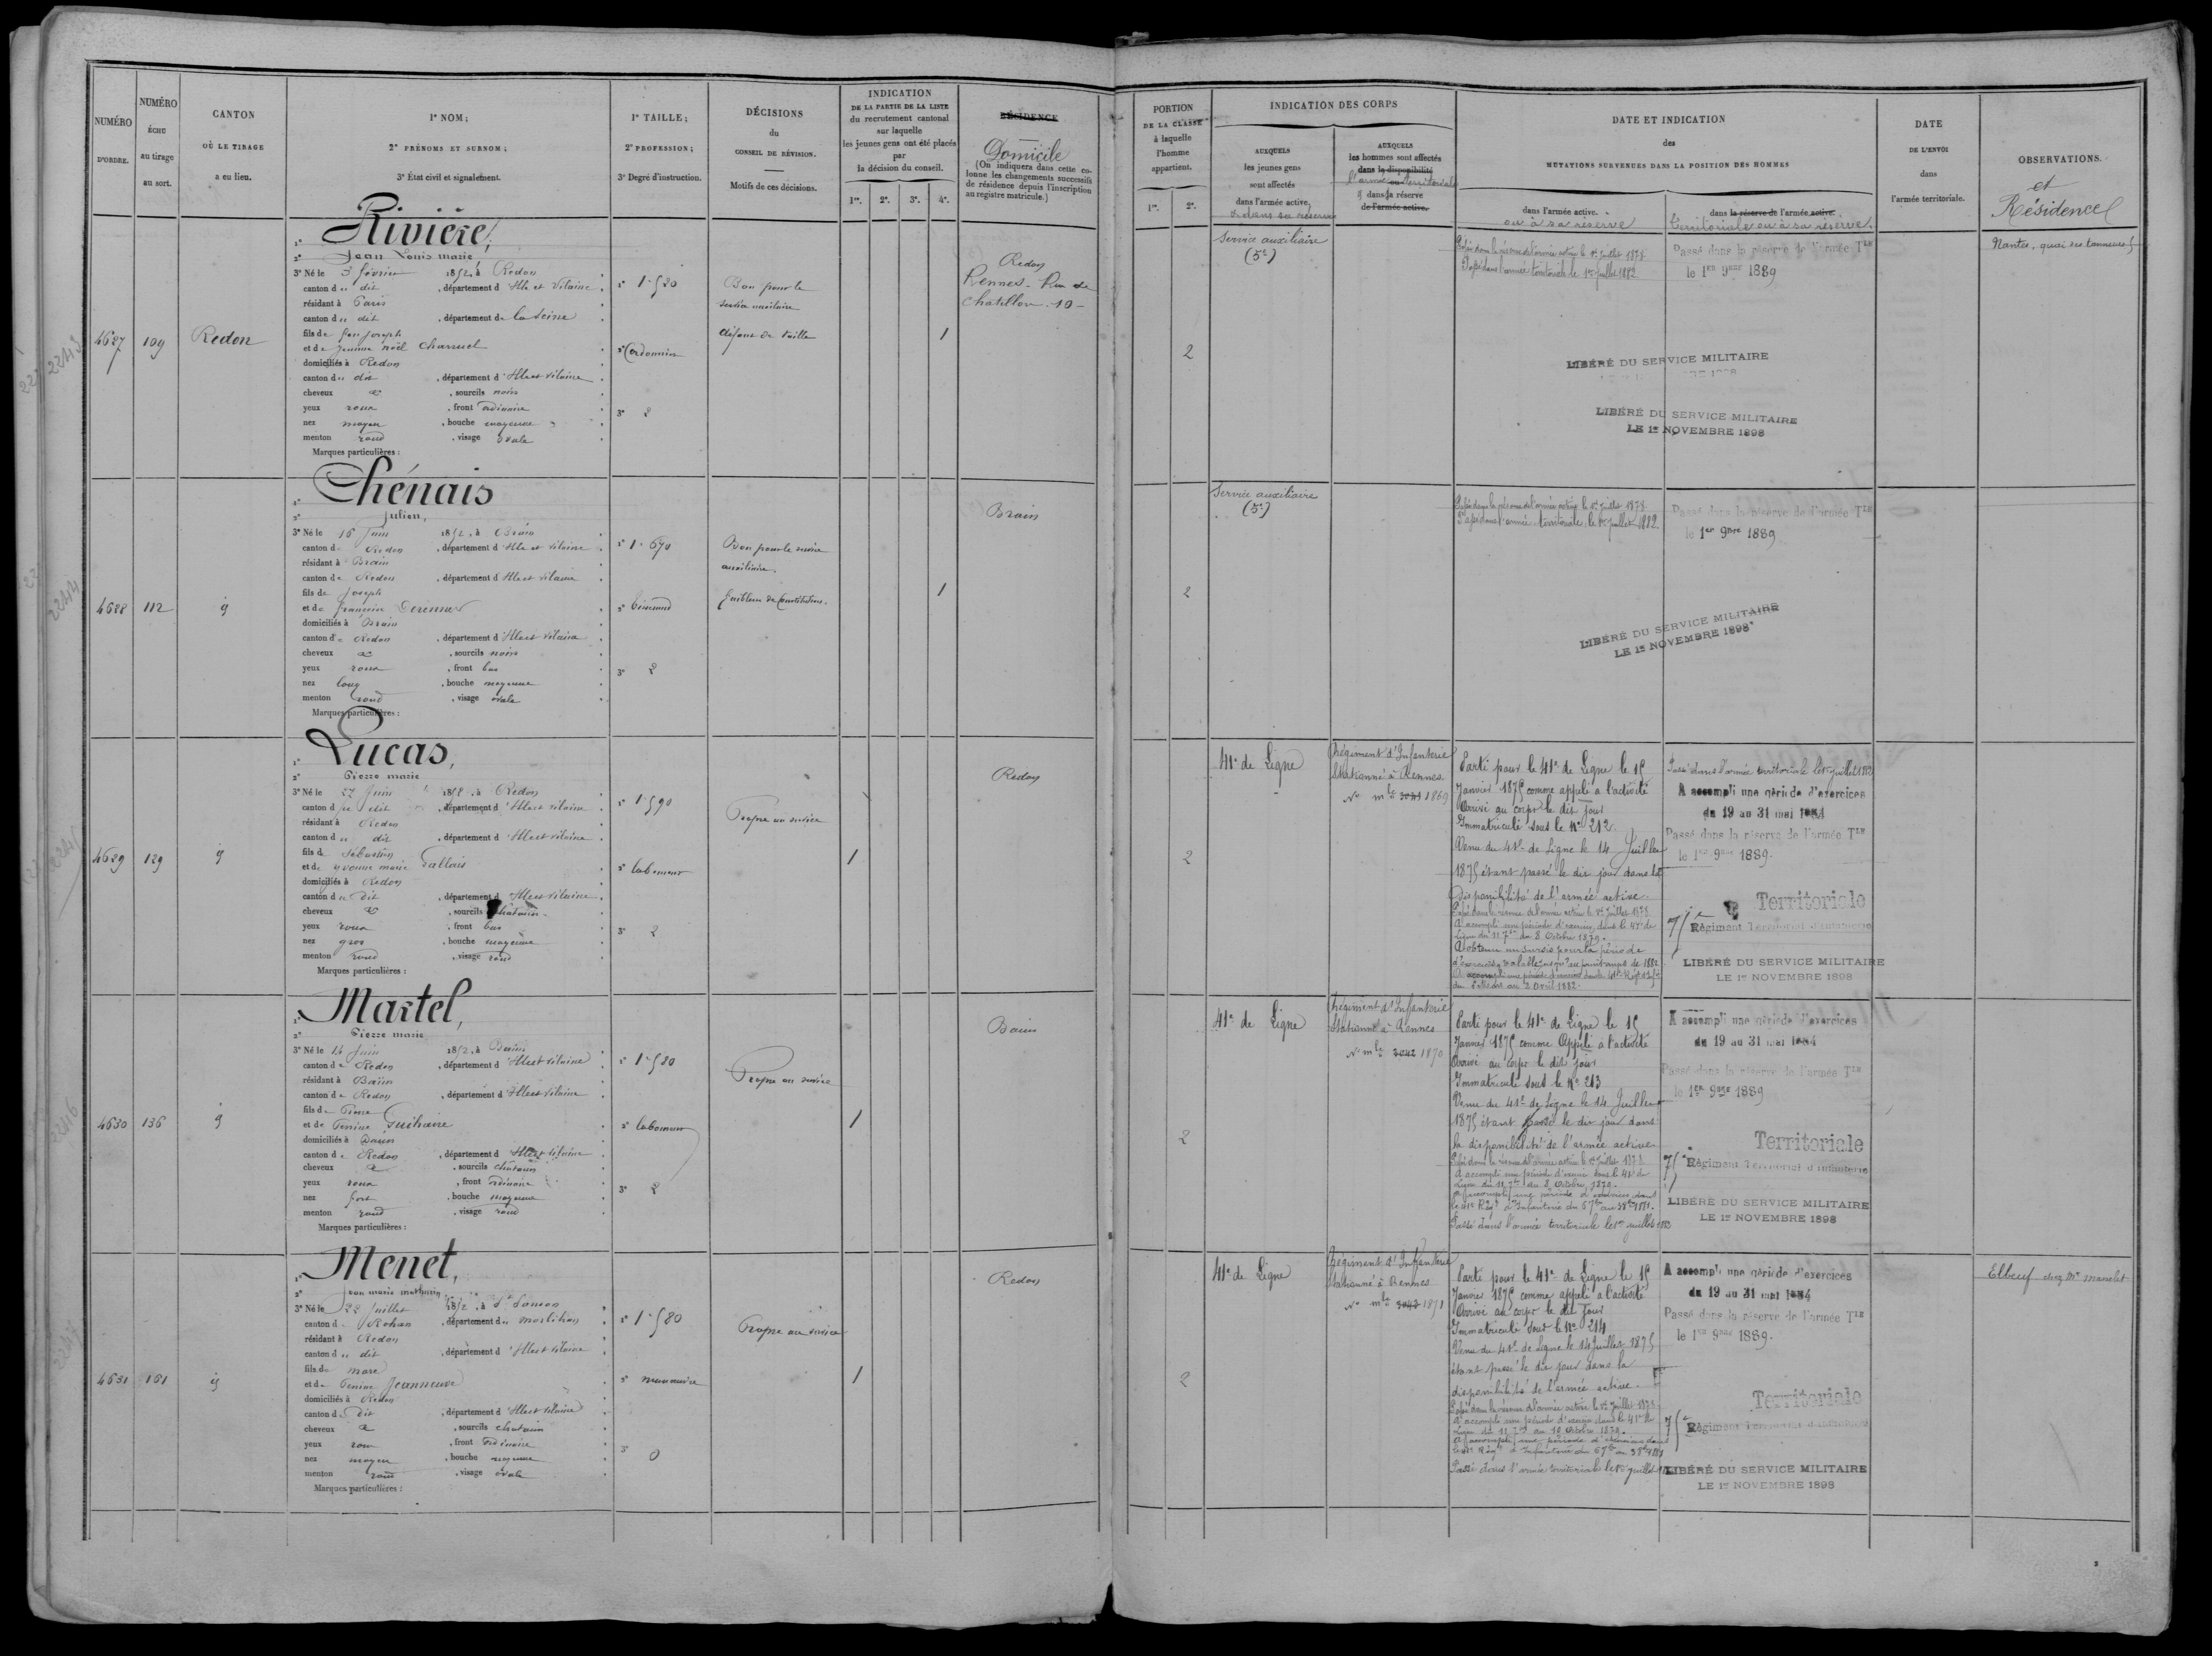 NUMÉRO
D'ORDRE.
NUMÉRO
ÉCHU
au tirage
au sort.
CANTON
OÙ LE TIRAGE
a eu lien.
1° NOM;
2° PRÉNOMS ET SURNOM;
3° État civil et signalement.
1° TAILLE;
2° PROFESSION;
3° Degré d'instruction.
DÉCISIONS
du
CONSEIL DE RÉVISION.
Motifs de ces décisions.
INDICATION
DE LA PARTIE DE LA LISTE
du recrutement cantonal
sur laquelle
les jeunes gens ont été placés
par
la décision du conseil.
1re. 2e. 3e. 4e.
RÉSIDENCE
Domicile
(On indiquera dans cette co-
lonne les changements successifs
de résidence depuis l'inscription
au registre matricule.)
4627
109
Redon
Rivière,
Jean Louis marie
3° Né le 3 février 1852, à Redon
canton du dit, département d'Ille et Vilaine
résidant à Paris
canton du dit, département de la Seine
fils de Jean Joseph
et de Jeanne Noël Charruel
domiciliés à Redon
canton du dit, département d'Ille et Vilaine
cheveux &, sourcils noirs
yeux roux, front ordinaire
nez moyen, bouche moyenne
menton rond, visage ovale
Marques particulières :
1° 1.520
2° Cordonnier
3° 2
Bon pour le
service auxiliaire
défaut de taille
1
Redon
Rennes - Rue de
Chatillon - 10 -
4628
112
id
Chénais
Julien,
3° Né le 16 Juin 1852, à Brain
canton de Redon, département d'Ille et Vilaine
résidant à Brain
canton de Redon, département d'Ille et Vilaine
fils de Joseph
et de Françoise
domiciliés à Brain
canton de Redon, département d'Ille et Vilaine
cheveux &, sourcils noirs
yeux roux, front bas
nez long, bouche moyenne
menton rond, visage ovale
Marques particulières :
1° 1.670
2°
3° 2
Bon pour le service
auxiliaire.
faiblesse de Constitution.
1
Brain
4629
129
id
Lucas,
Pierre marie
3° Né le 27 Juin 1852, à Redon
canton du dit, département d'Ille et Vilaine
résidant à Redon
canton du dit, département d'Ille et Vilaine
fils de Sébastien
et de Yvonne marie Dallais
domiciliés à Redon
canton du dit, département d'Ille et Vilaine
cheveux &, sourcils chatains
yeux roux, front bas
nez gros, bouche moyenne
menton rond, visage rond
Marques particulières :
1° 1.590
2° laboureur
3° 2
Propre au service
1
Redon
4630
136
id
Martel,
Pierre marie
3° Né le 14 Juin 1852, à Bains
canton de Redon, département d'Ille et Vilaine
résidant à Bains
canton de Redon, département d'Ille et Vilaine
fils de Pierre
et de Perrine Guihaire
domiciliés à Bains
canton de Redon, département d'Ille et Vilaine
cheveux &, sourcils chatains
yeux roux, front ordinaire
nez fort, bouche moyenne
menton rond, visage rond
Marques particulières :
1° 1.580
2° laboureur
3° 2
Propre au service
1
Bains
4631
161
id
Menet,
Jean marie mathurin
3° Né le 22 Juillet 1852, à St Samson
canton de Rohan, département du Morbihan
résidant à Redon
canton du dit, département d'Ille et Vilaine
fils de Marc
et de Perrine Jeanneuse
domiciliés à Redon
canton du dit, département d'Ille et Vilaine
cheveux &, sourcils chatains
yeux roux, front ordinaire
nez moyen, bouche moyenne
menton rond, visage ovale
Marques particulières :
1° 1.580
2° manœuvre
3° 0
Propre au service
1
Redon
PORTION
DE LA CLASSE
à laquelle
l'homme
appartient.
1re. 2e.
INDICATION DES CORPS
AUXQUELS
les jeunes gens
sont affectés
dans l'armée active,
ou dans sa réserve
AUXQUELS
les hommes sont affectés
dans la disponibilité
l'armée territoriale
& dans la réserve
de l'armée active.
DATE ET INDICATION
des
MUTATIONS SURVENUES DANS LA POSITION DES HOMMES
dans l'armée active.
ou à sa réserve
dans la réserve de l'armée active.
territoriale ou à sa réserve.
DATE
DE L'ENVOI
dans
l'armée territoriale.
OBSERVATIONS.
et
Résidence
2
Service auxiliaire
(5e)
Passé dans la réserve de l'armée active le 1er Juillet 1878
Passé dans l'armée territoriale le 1er Juillet 1882
Passé dans la réserve de l'armée Tle
le 1er 9bre 1889
LIBÉRÉ DU SERVICE MILITAIRE
LIBÉRÉ DU SERVICE MILITAIRE
LE 1er NOVEMBRE 1898
Nantes, quai des tanneurs 5
2
Service auxiliaire
(5e)
Passé dans la réserve de l'armée active le 1er Juillet 1878
Passé dans l'armée territoriale, le 1er Juillet 1882
Passé dans la réserve de l'armée Tle
le 1er 9bre 1889
LIBÉRÉ DU SERVICE MILITAIRE
LE 1er NOVEMBRE 1898
2
41e de Ligne
Régiment d'Infanterie
Stationné à Rennes
N° mle 3041 1869
Parti pour le 41e de Ligne le 15
Janvier 1875 comme appelé à l'activité
Arrivé au corps le dit jour
Immatriculé sous le N° 212.
Venu du 41e de Ligne le 14 Juillet
1875 étant passé le dit jour dans la
disponibilité de l'armée active.
Passé dans la réserve de l'armée active le 1er Juillet 1878
A accompli une période d'exercice dans le 41e de
Ligne du 11 7bre au 8 Octobre 1879.
A obtenu un sursis pour la période
d'exercices valable jusqu'au printemps de 1882
A accompli une période d'exercice dans le 41e Régt d'Infie
au 2 avril 1882.
Passé dans l'armée territoriale le 1er juillet 1882
A accompli une période d'exercices
du 19 au 31 mai 1884
Passé dans la réserve de l'armée Tle
le 1er 9bre 1889
Territoriale
75e Régiment Territorial d'infanterie
LIBÉRÉ DU SERVICE MILITAIRE
LE 1er NOVEMBRE 1898
2
41e de Ligne
Régiment d'Infanterie
Stationné à Rennes
N° mle 3042 1870
Parti pour le 41e de Ligne le 15
Janvier 1875 comme Appelé à l'activité
Arrivé au corps le dit jour
Immatriculé sous le N° 213
Venu du 41e de Ligne le 14 Juillet
1875 étant passé le dit jour dans
la disponibilité de l'armée active
Passé dans la réserve de l'armée active le 1er Juillet 1878
A accompli une période d'exercice dans le 41e de
Ligne du 11 7bre au 8 Octobre 1879.
A accompli une période d'exercices dans
le 41e Régt d'Infanterie du 5 7bre au 3 8bre 1881.
Passé dans l'armée territoriale le 1er juillet 1882
A accompli une période d'exercices
du 19 au 31 mai 1884
Passé dans la réserve de l'armée Tle
le 1er 9bre 1889
Territoriale
75e Régiment Territorial d'infanterie
LIBÉRÉ DU SERVICE MILITAIRE
LE 1er NOVEMBRE 1898
2
41e de Ligne
Régiment d'Infanterie
Stationné à Rennes
N° mle 3043 1871
Parti pour le 41e de Ligne le 15
Janvier 1875 comme appelé à l'activité
Arrivé au corps le dit Jour
Immatriculé sous le N° 214
Venu du 41e de Ligne le 14 Juillet 1875
étant passé le dit jour dans la
disponibilité de l'armée active.
Passé dans la réserve de l'armée active le 1er Juillet 1878
A accompli une période d'exercice dans le 41e de
Ligne du 11 7bre au 10 Octobre 1879.
A accompli une période d'exercices dans
le 41e Régt d'Infanterie du 5 7bre au 3 8bre 1881
Passé dans l'armée territoriale le 1er juillet
A accompli une période d'exercices
du 19 au 31 mai 1884
Passé dans la réserve de l'armée Tle
le 1er 9bre 1889.
Territoriale
75e Régiment Territorial d'infanterie
LIBÉRÉ DU SERVICE MILITAIRE
LE 1er NOVEMBRE 1898
Elbeuf chez Mr